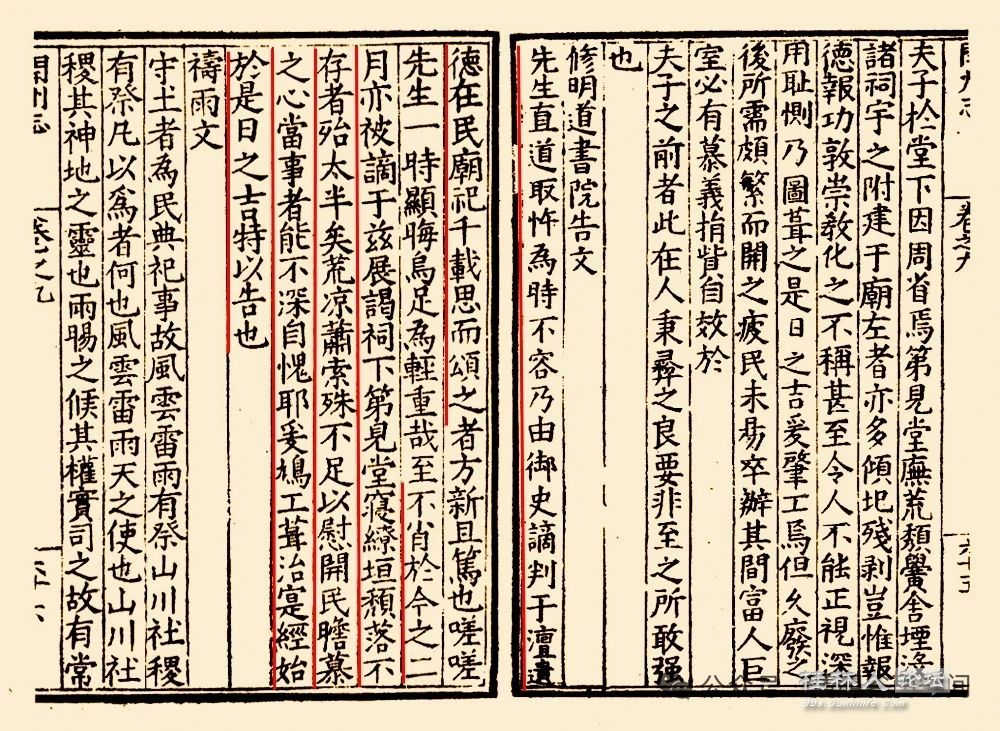 夫子於堂下因周省焉第見堂廡荒頽黌舍堙
諸祠宇之附建于廟左者亦多傾圮殘剥豈惟報
德報功敦崇教化之不稱甚至令人不能正視深
用耻惻乃圖葺之是日之吉爰肇工焉但久廢之
後所需頗繁而開之疲民未易卒辦其間富人巨
室必有慕義捐貲自效於
夫子之前者此在人秉彝之良要非至之所敢强
也
修明道書院告文
先生直道取忤為時不容乃由御史謫判于澶遺
德在民廟祀千載思而頌之者方新且篤也嗟嗟
先生一時顯晦烏足為輕重哉至不肖於今之二
月亦被謫于兹展謁祠下第見堂寢繚垣頽落不
存者殆太半矣荒凉蕭索殊不足以慰開民瞻慕
之心當事者能不深自愧耶妥鳩工葺治寔經始
於是日之吉特以告也
禱雨文
守土者為民典祀事故風雲雷雨有祭山川社稷
有祭凡以為者何也風雲雷雨天之使也山川社
稷其神地之靈也雨暘之候其權實司之故有常
開州志
卷之九
六十六
卷之九
六十五
公众号
桂林人论坛
bbs.Guilinlife.Com